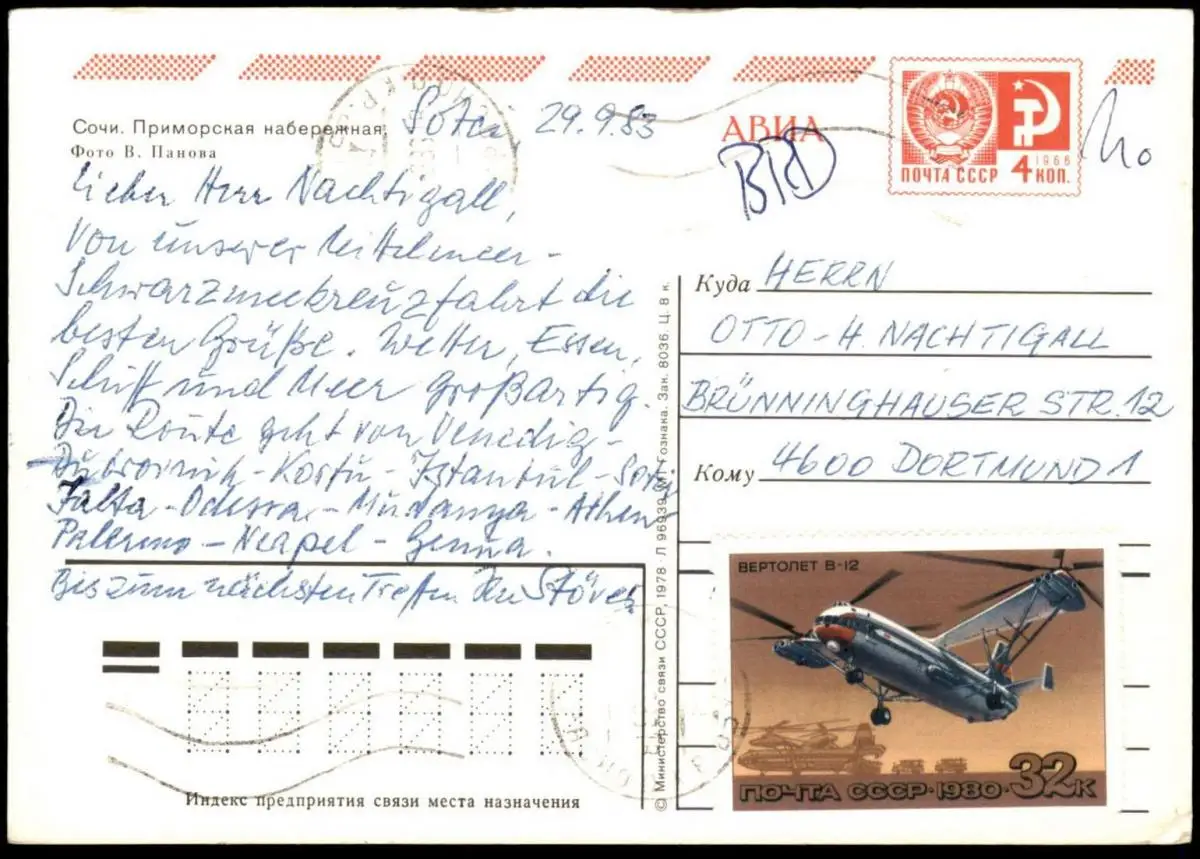 Сочи. Приморская набережная.
Фото В. Панова
Sotci 29.9.83
АВИА
BRD
ПОЧТА СССР
1966
4 КОП.
Lieber Herr Nachtigall,
von unserer Mittelmeer-
Schwarzmeerkreuzfahrt die
besten Grüße. Wetter, Essen,
Schiff und Meer großartig.
Die Route geht von Venedig-
Dubrovnik-Korfu-Istanbul-Sotji
Jalta-Odessa-Mudanya-Athen-
Palermo-Neapel-Genua.
Bis zum nächsten Treffen Ihr
Куда HERRN
OTTO-H. NACHTIGALL
BRÜNNINGHAUSER STR. 12
Кому 4600 DORTMUND 1
© Министерство связи СССР, 1978. Л 96939. МТ Гознака. Зак. 8036. Ц. 8 к.
ВЕРТОЛЕТ В-12
ПОЧТА СССР·1980·32К
Индекс предприятия связи места назначения